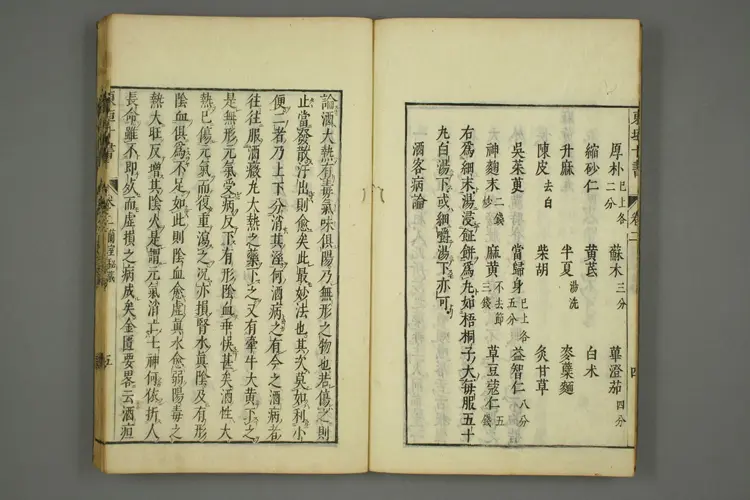 厚朴 已上各二分 蘇木 三分 蓽澄茄 四分
縮砂仁 黄芪 白朮
升麻 半夏 湯洗 麥蘖麵
陳皮 去白 柴胡 炙甘草
吳茱萸 當歸身 已上各五分 益智仁 八分
神麴末 二錢 炒 麻黄 不去節 三錢 草豆蔻仁 五錢
右為細末湯浸𩜶餅為丸如梧桐子大每服五十
丸白湯下或細嚼湯下亦可
一酒客病論
論酒大熱有毒氣味俱陽乃無形之物也若傷之則
止當發散汗出則愈矣此最妙法也其次莫如利小
便二者乃上下分消其濕何酒病之有今之酒病者
往往服酒癥丸大熱之藥下之又有牽牛大黄下之
是無形元氣受病反下有形陰血乖悞甚矣酒性大
熱已傷元氣而復重瀉之况亦損腎水真陰及有形
陰血俱為不足如此則陰血愈虛真水愈弱陽毒之
熱大旺反增其陰火是謂元氣消亡七神何依折人
長命雖不即死而虛損之病成矣金匱要畧云酒疸
卷二
四
卷二 蘭室秘藏
五